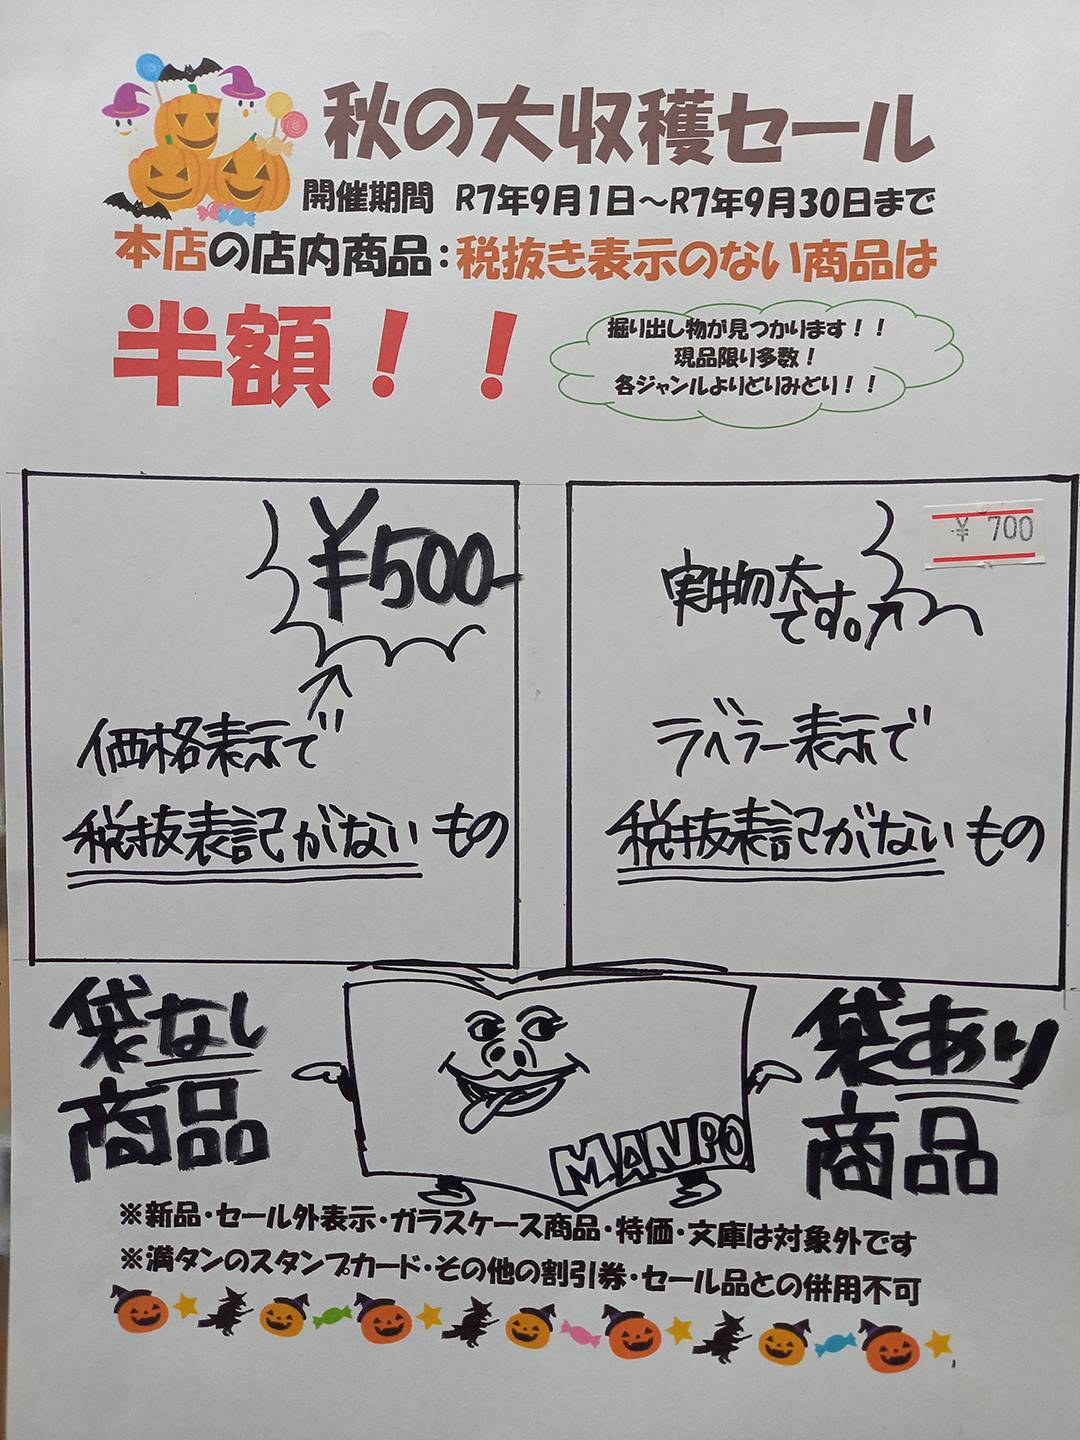 秋の大収穫セール
開催期間 R7年9月1日～R7年9月30日まで
本店の店内商品：税抜き表示のない商品は
半額！！
掘り出し物が見つかります！！
現品限り多数！
各ジャンルよりどりみどり！！
¥500-
価格表示で
税抜表記がないもの
¥ 700
実物大
です。
ラベラー表示で
税抜表記がないもの
袋なし
商品
MANPO
袋あり
商品
※新品・セール外表示・ガラスケース商品・特価・文庫は対象外です
※満タンのスタンプカード・その他の割引券・セール品との併用不可